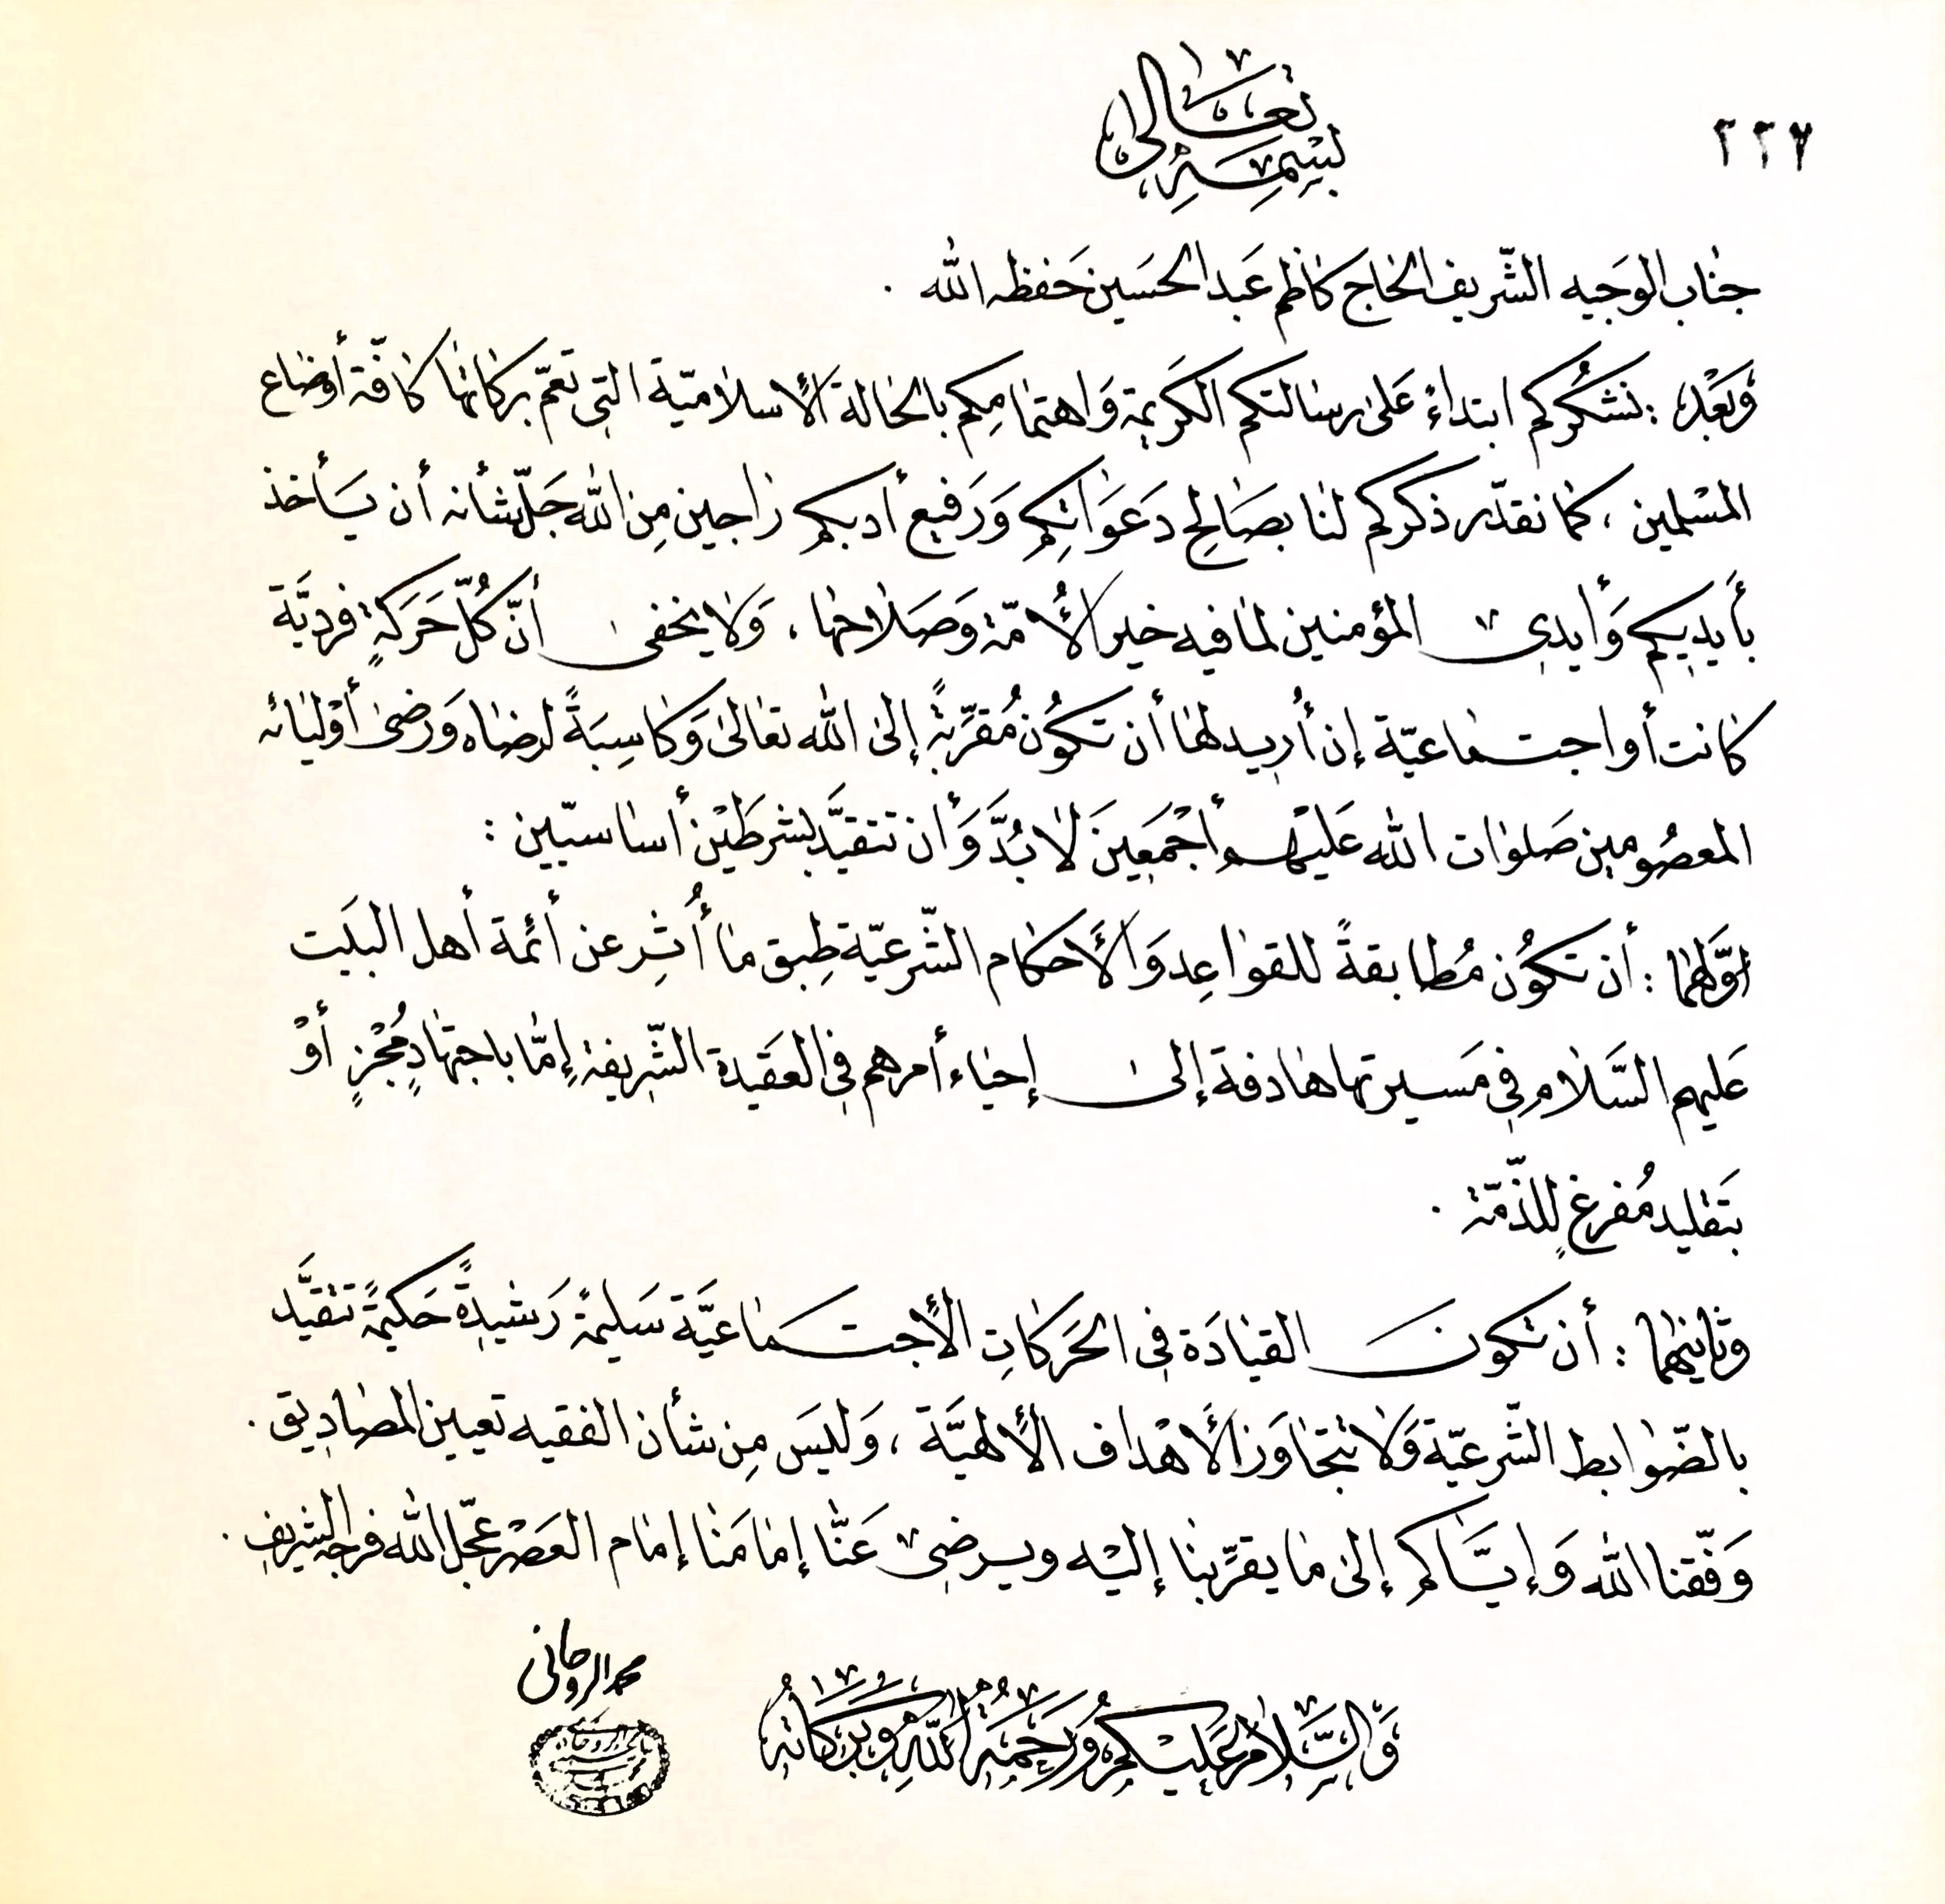 ٢٢٧
بسمه تعالى
جناب الوَجيه الشّريف الحاج كاظم عَبد الحسَين حَفظه الله .
وَبَعْد : نشكُركم ابتداءً عَلىٰ رسالتكم الكَريمة وَاهتمامِكم بالحالة الأسلاميّة التي تعمّ بركاتها كافّة أوضاع
المسْلمين ، كما نقدّر ذكركم لنا بصَالحِ دَعَوَاتِكم وَرَفيع أدبكم راجين مِن الله جَلّ شأنه أن يَأخذ
بأَيديكم وَأيدي المؤمنين لما فيه خير الأُمّة وَصَلاحها ، وَلا يخفى أنّ كُلّ حَرَكةٍ فرديَّة
كانت أو اجتماعيّة إن أُريد لها أن تكُون مُقرِّبةً إلىٰ الله تعالىٰ وَكاسِبَةً لرضاه وَرضىٰ أوْليائه
المعصُومين صَلوات الله عَليْهم أجْمَعِينَ لا بُدَّ وَأن تتقيَّد بشرطَيْن أساسيّين :
اوَّلهما : أن تكُون مُطابقةً للقواعِد وَالأَحكام الشّرعيّة طِبق ما أُثِر عن أئمة أهل البَيت
عَليهم السَّلام في مَسيرتها هادفة إلىٰ إحياء أمرهم في العَقيدة الشّريفة إمّا باجتهادٍ مُجْزٍ أوْ
بتَقليد مُفرغٍ للذّمّة .
وثانيهما : أن تكونَ القيادَة في الحَرَكاتِ الأجتماعيَّة سَليمةً رَشيدةً حَكيمةً تتقيَّد
بالضّوابط الشّرعيّة وَلا تتجاوَز الأَهْداف الألهيَّة ، وَليسَ مِن شأن الفقيه تعيين المصاديق .
وَفّقنا الله وَإيَّاكم إلىٰ ما يقرِّبنا إليْه ويرضي عَنّا إمامَنا إمام العَصْر عجّل الله فرجه الشريف .
محمد الروحاني
وَالسَّلامُ عَليْكم وَرَحْمَةُ اللهِ وَبَرَكاتُهُ